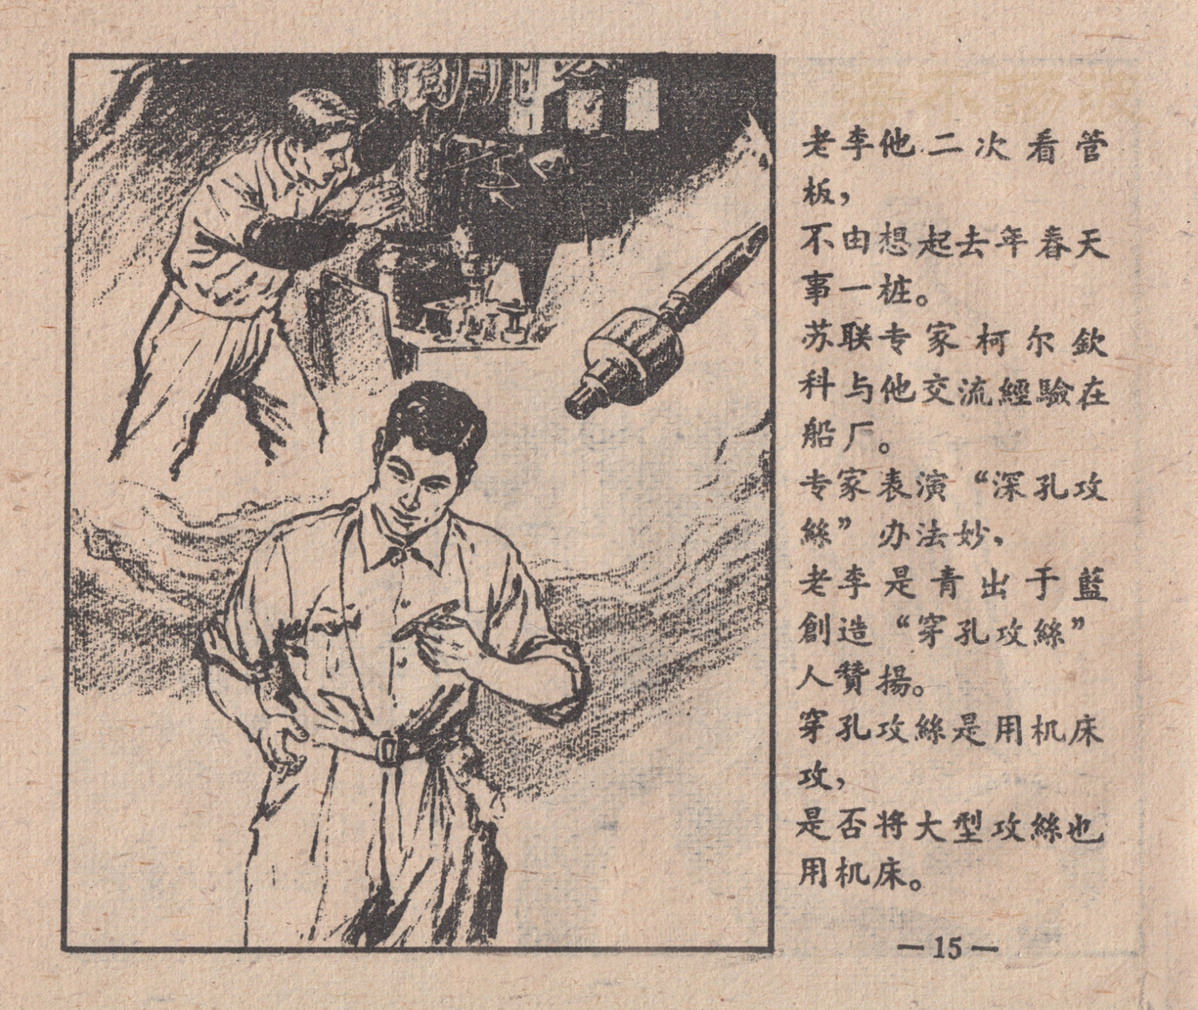 老李他二次看管
板，
不由想起去年春天
事一桩。
苏联专家柯尔欽
科与他交流經驗在
船厂。
专家表演“深孔攻
絲”办法妙，
老李是青出于藍
創造“穿孔攻絲”
人贊揚。
穿孔攻絲是用机床
攻，
是否将大型攻絲也
用机床。
—15—